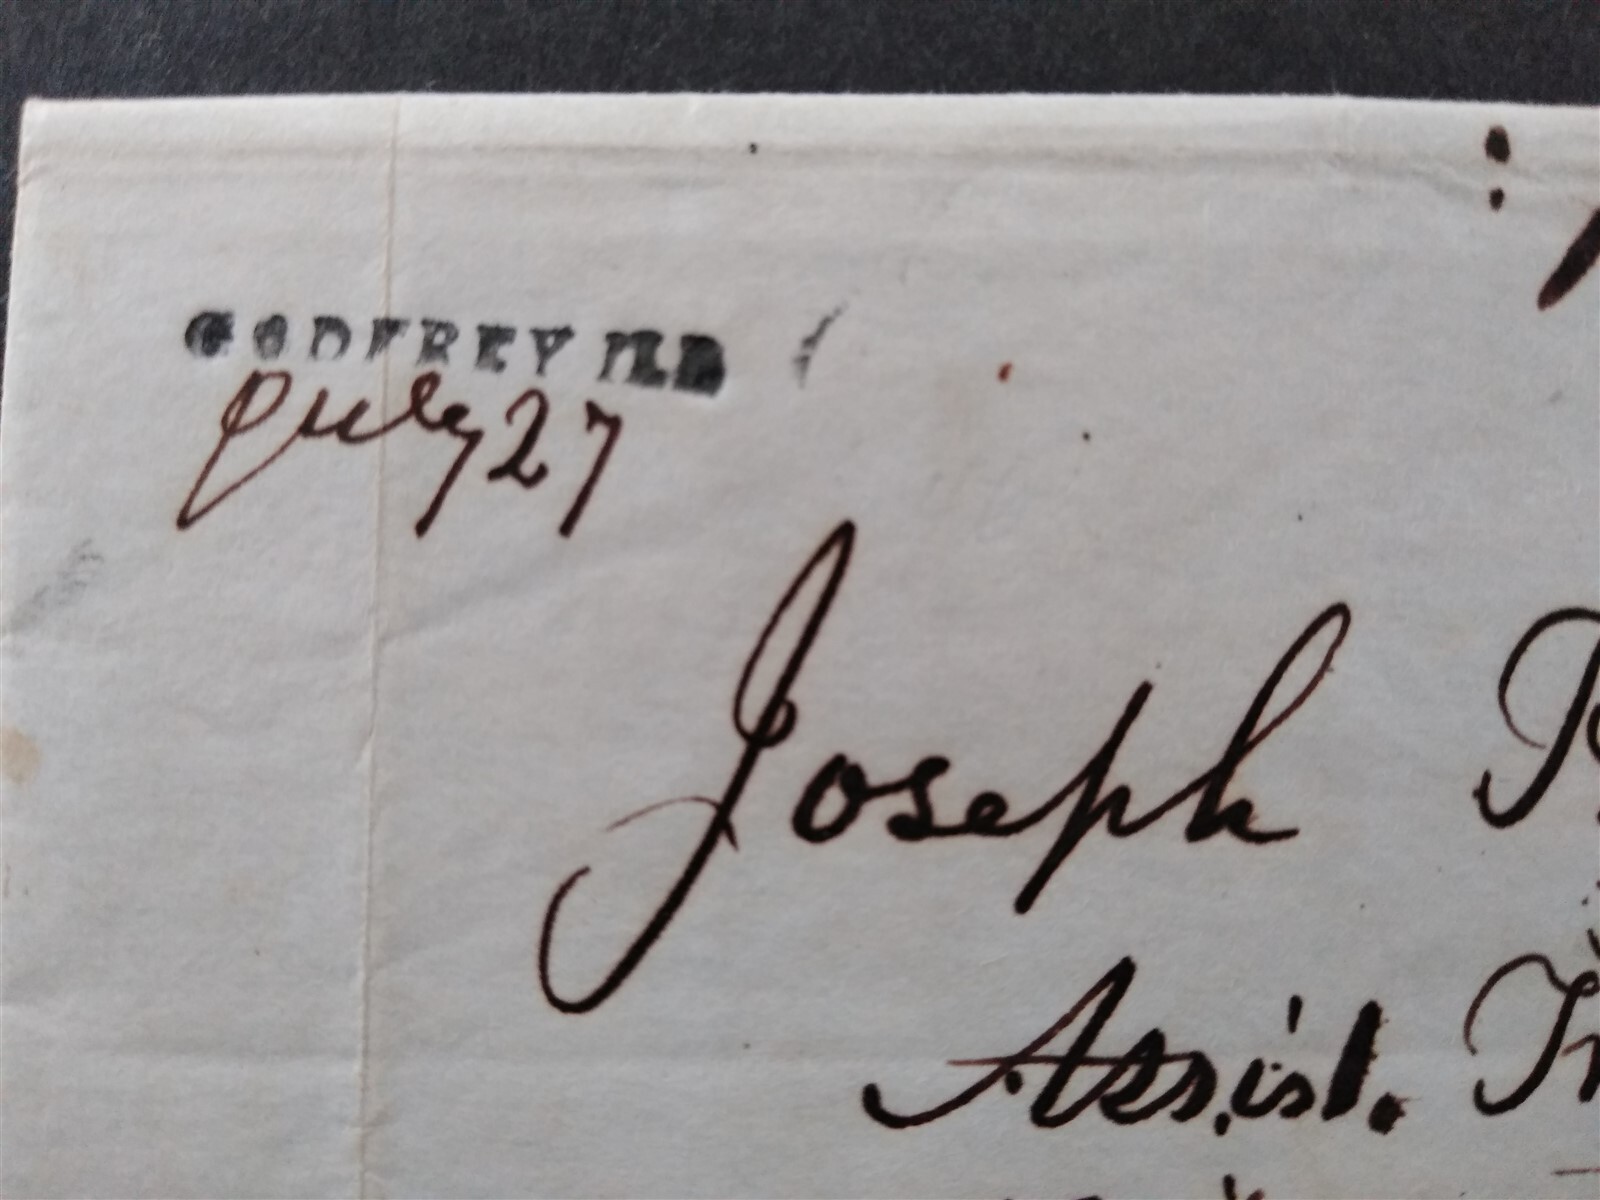 GODFREY ILL
July 27
Joseph
Assist.